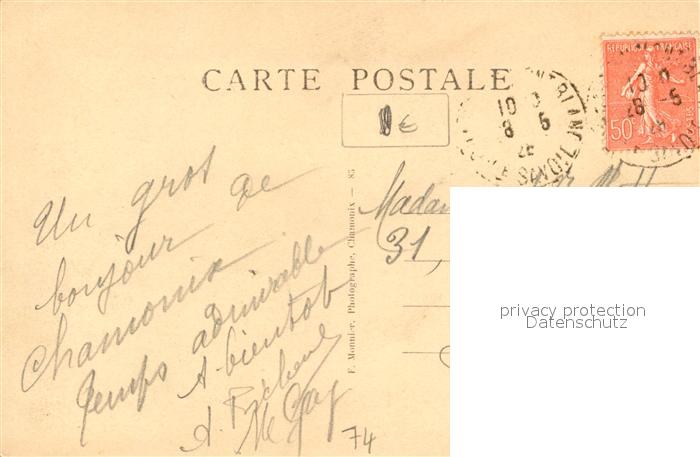 CARTE POSTALE
REPUBLIQUE FRANÇAISE
50c
10
8 5
26
SAVOIE
€
Un gros
bonjour de
Chamonix
Temps admirable
A bientôt
A.
Me
74
F. Monnier, Photographe, Chamonix — 85
Madam
31,
privacy protection
Datenschutz